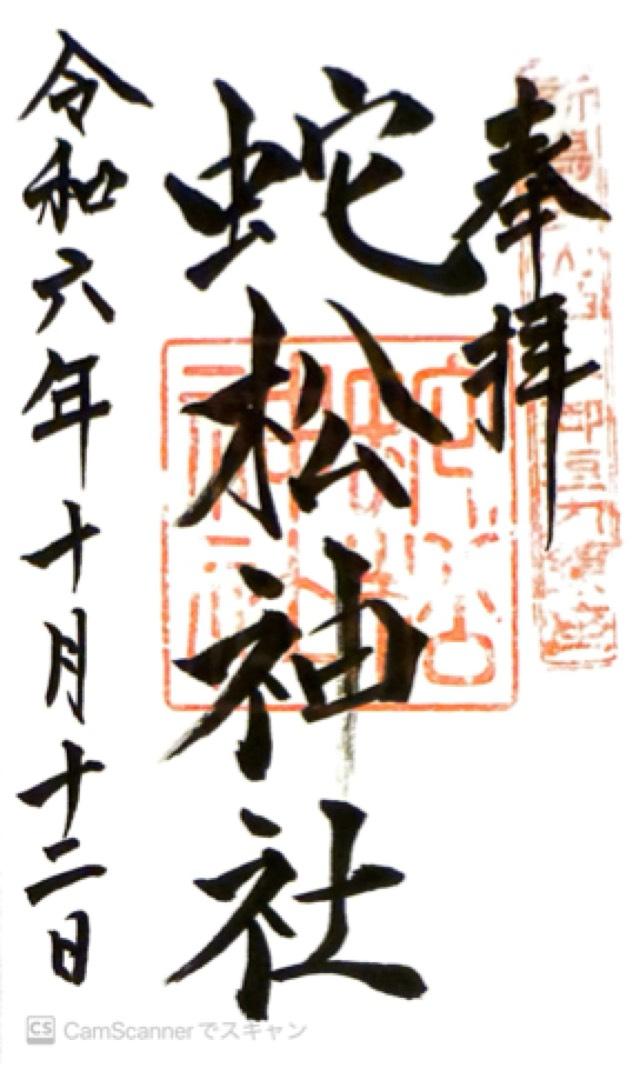 奉拝
蛇松神社
令和六年十月十二日
CS CamScannerでスキャン